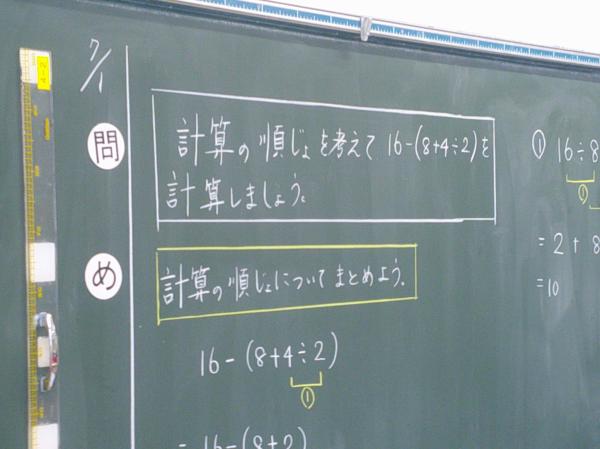 7/1
問
計算の順じょを考えて 16-(8+4÷2)を
計算しましょう。
め
計算の順じょについて まとめよう。
16-(8+4÷2)
①
= 16-(8+2)
① 16÷8
①
= 2 + 8
= 10